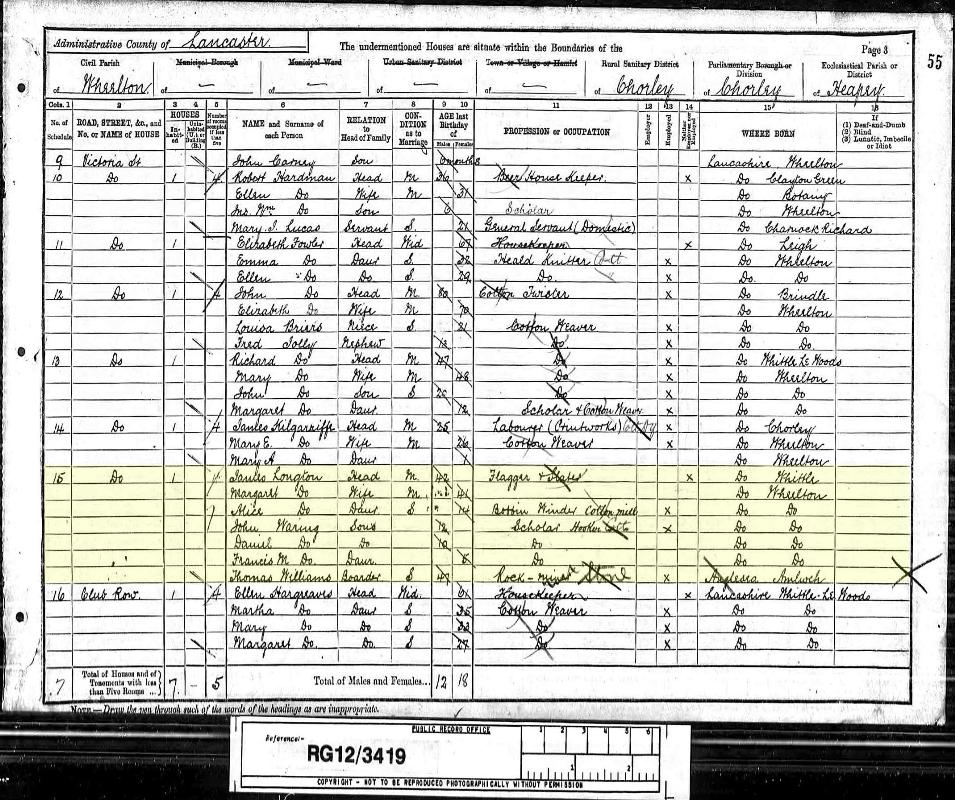 Administrative County of Lancaster.
The undermentioned Houses are situate within the Boundaries of the
Page 3
55
Civil Parish
of Wheelton
Municipal Borough
of
Municipal Ward
of
Urban Sanitary District
of
Town or Village or Hamlet
of
Rural Sanitary District
of Chorley
Parliamentary Borough or Division
of Chorley
Ecclesiastical Parish or District
of Heapey
Cols. 1 2 3 4 5 6 7 8 9 10 11 12 13 14 15 16
No. of Schedule
ROAD, STREET, &c., and No. or NAME of HOUSE
HOUSES
In-habited
Uninhabited (U.) or Building (B.)
Number of rooms occupied if less than five
NAME and Surname of each Person
RELATION to Head of Family
CONDITION as to Marriage
AGE last Birthday of
Males Females
PROFESSION or OCCUPATION
Employer
Employed
Neither Employer nor Employed
WHERE BORN
If (1) Deaf-and-Dumb (2) Blind (3) Lunatic, Imbecile or Idiot
9 Victoria St John Carney Son months Lancashire Wheelton
10 Do 1 4 Robert Hardman Head M 36 Beer House Keeper. x Do Clayton Green
Ellen Do Wife M 31 Do Botany
Jno. Wm Do Son 6 Scholar Do Wheelton
Mary J. Lucas Servant S. 21 General Servant (Domestic) Do Charnock Richard
11 Do 1 Elizabeth Fowler Head Wid 67 Housekeeper x Do Leigh
Emma Do Daur S 32 Heald Knitter x Do Wheelton
Ellen Do Do S 29 Do. x Do. Do
12 Do 1 4 John Do Head M 80 Cotton Do Brindle
Elizabeth Do Wife M 70 Do Wheelton
Louisa Briers Niece S 21 Cotton Weaver x Do Do
Fred Jolly Nephew 13 Do x Do Do.
13 Do 1 Richard Do Head M 47 Do x Do Whittle Le Woods
Mary Do Wife M 48 Do x Do Wheelton
John Do Son S 20 Do x Do Do
Margaret Do Daur 12 Scholar & Cotton Weaver x Do Do
14 Do 1 4 James Kilgarriffe Head M 25 Labourer (Printworks) x Do Chorley
Mary E. Do Wife M 26 Cotton Weaver x Do Wheelton
Mary A. Do Daur 1 Do Wheelton
15 Do 1 4 James Longton Head M 42 Flagger & Slater x Do Whittle
Margaret Do Wife M. 41 Do Wheelton
Alice Do Daur S 14 Bobbin Winder Cotton mill x Do Do
John Waring Sons 12 Scholar Hooker x Do Do
Daniel Do Do 10 Do Do Do
Francis M. Do. Daur. 6 Do Do Do
Thomas Williams Boarder S 47 Rock-miner Stone x Anglesea Amlwch
16 Club Row. 1 4 Ellen Hargreaves Head Wid. 61 Housekeeper x Lancashire Whittle-Le Woods
Martha Do Daur S 35 Cotton Weaver x Do Do
Mary Do Do S 33 Do x Do Do
Margaret Do. Do. S 27 Do x Do Do
7 Total of Houses and of Tenements with less than Five Rooms ... 7 – 5 Total of Males and Females... 12 18
NOTE.—Draw the pen through such of the words of the headings as are inappropriate.
PUBLIC RECORD OFFICE
1 2 3 4 5 6
Reference:-
RG12/3419
1 2
COPYRIGHT - NOT TO BE REPRODUCED PHOTOGRAPHICALLY WITHOUT PERMISSION